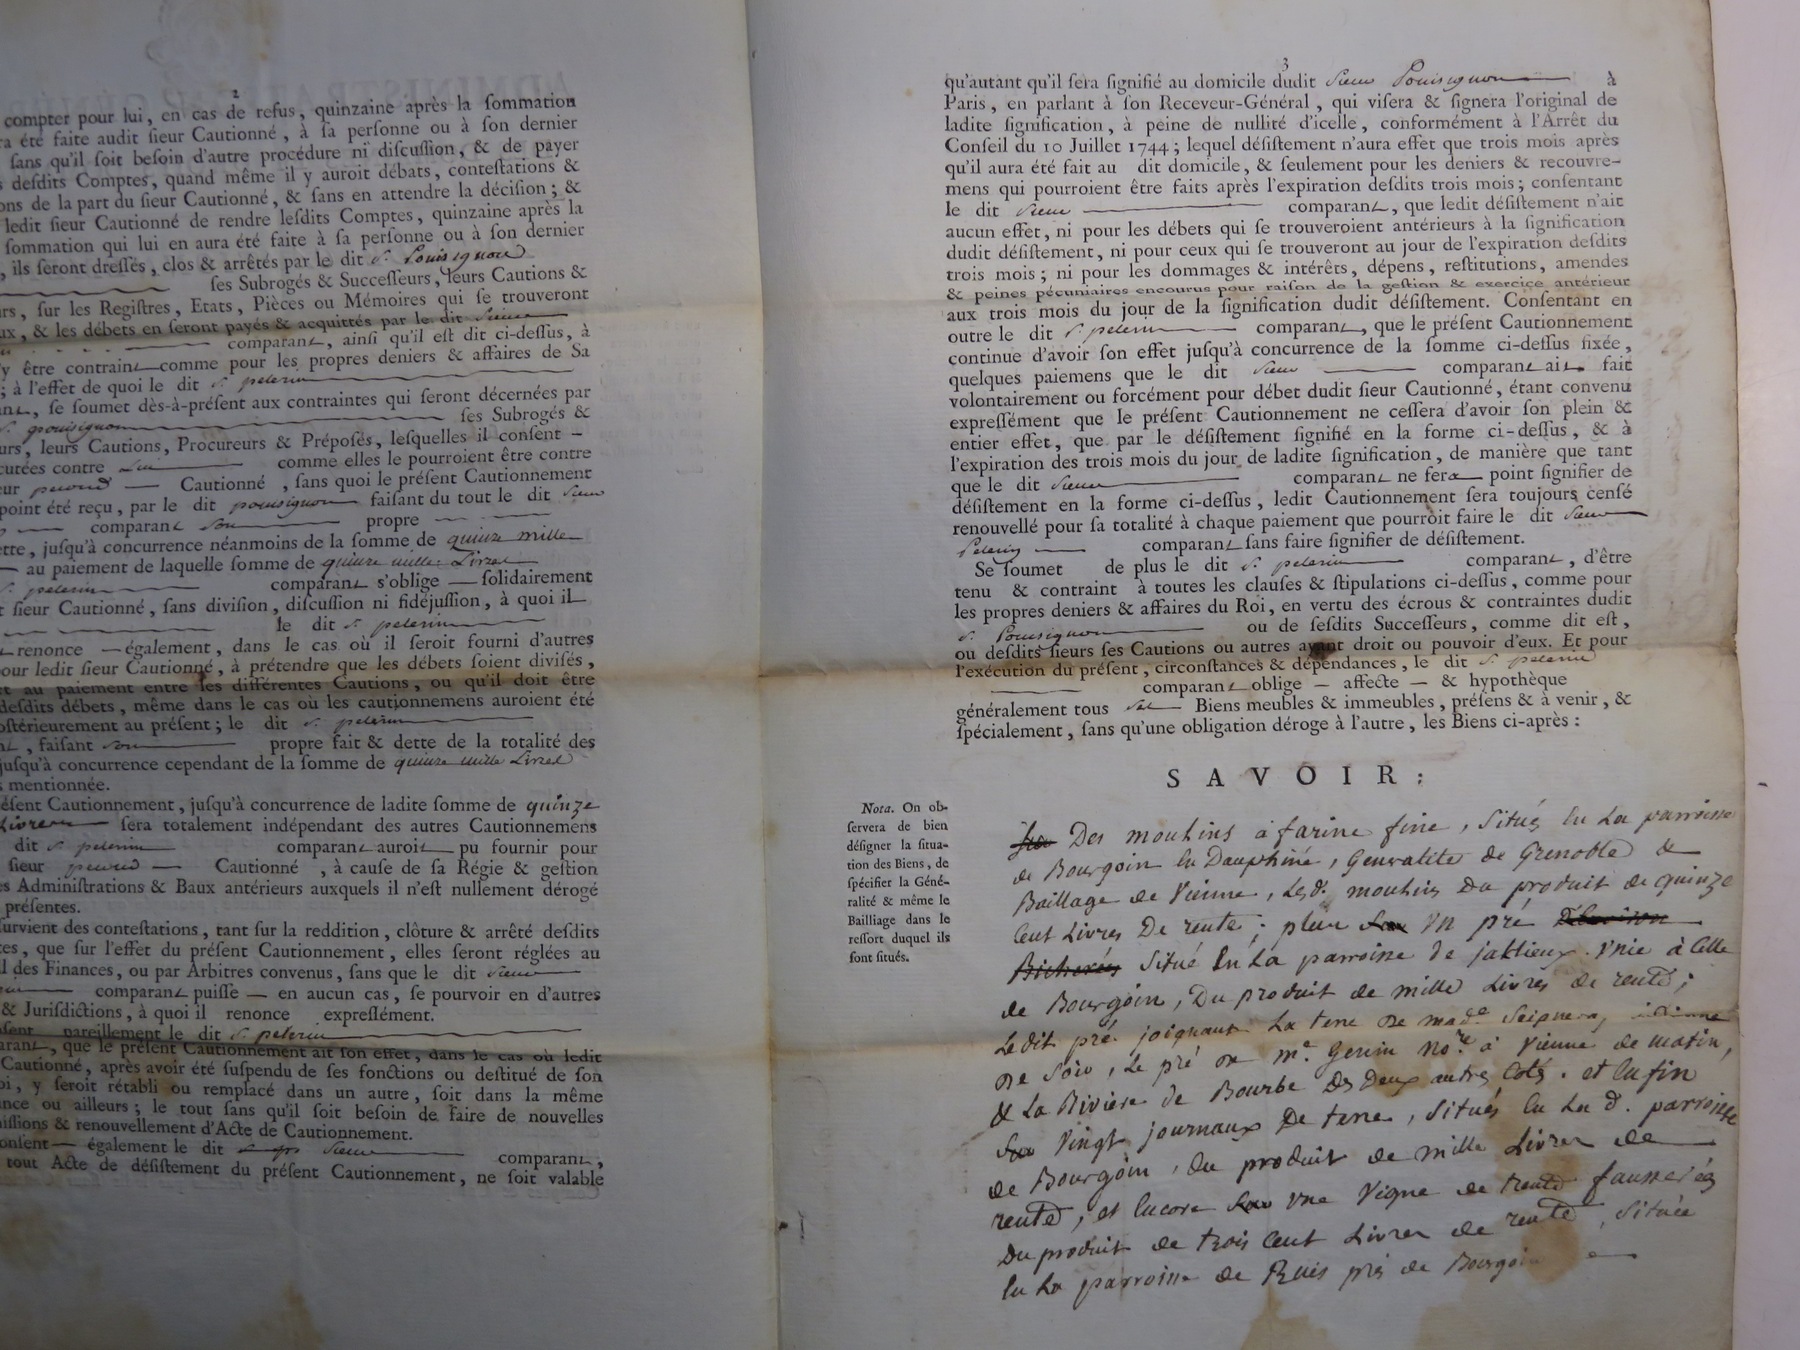 2
compter pour lui, en cas de refus, quinzaine après la sommation
ra été faite audit sieur Cautionné, à sa personne ou à son dernier
sans qu'il soit besoin d'autre procédure ni discussion, & de payer
desdits Comptes, quand même il y auroit débats, contestations &
ons de la part du sieur Cautionné, & sans en attendre la décision; &
ledit sieur Cautionné de rendre lesdits Comptes, quinzaine après la
sommation qui lui en aura été faite à sa personne ou à son dernier
, ils seront dressés, clos & arrêtés par le dit S. Pouisignon
ses Subrogés & Successeurs, leurs Cautions &
urs, sur les Registres, Etats, Pièces ou Mémoires qui se trouveront
ux, & les débets en seront payés & acquittés par le dit Sieur
comparant, ainsi qu'il est dit ci-dessus, à
y être contraint comme pour les propres deniers & affaires de Sa
; à l'effet de quoi le dit S. pelerin
ant, se soumet dès-à-présent aux contraintes qui seront décernées par
S. pouisignon ses Subrogés &
urs, leurs Cautions, Procureurs & Préposés, lesquelles il consent
cutées contre Lui comme elles le pourroient être contre
eur Cautionné, sans quoi le présent Cautionnement
point été reçu, par le dit pouisignon faisant du tout le dit Sieur
comparant son propre
ette, jusqu'à concurrence néanmoins de la somme de quinze mille
au paiement de laquelle somme de quinze mille Livres
S. pelerin comparant s'oblige solidairement
t sieur Cautionné, sans division, discussion ni fidéjussion, à quoi il
le dit S. pelerin
renonce également, dans le cas où il seroit fourni d'autres
our ledit sieur Cautionné, à prétendre que les débets soient divisés,
et au paiement entre les différentes Cautions, ou qu'il doit être
desdits débets, même dans le cas où les cautionnemens auroient été
ostérieurement au présent; le dit S. pelerin
nt, faisant son propre fait & dette de la totalité des
jusqu'à concurrence cependant de la somme de quinze mille Livres
s mentionnée.
ésent Cautionnement, jusqu'à concurrence de ladite somme de quinze
Livres sera totalement indépendant des autres Cautionnemens
dit S. pelerin comparant auroit pu fournir pour
sieur Cautionné, à cause de sa Régie & gestion
es Administrations & Baux antérieurs auxquels il n'est nullement dérogé
présentes.
survient des contestations, tant sur la reddition, clôture & arrêté desdits
tes, que sur l'effet du présent Cautionnement, elles seront réglées au
l des Finances, ou par Arbitres convenus, sans que le dit Sieur
comparant puisse en aucun cas, se pourvoir en d'autres
& Jurisdictions, à quoi il renonce expressément.
sent pareillement le dit S. pelerin
arant, que le présent Cautionnement ait son effet, dans le cas où ledit
Cautionné, après avoir été suspendu de ses fonctions ou destitué de son
oi, y seroit rétabli ou remplacé dans un autre, soit dans la même
ance ou ailleurs; le tout sans qu'il soit besoin de faire de nouvelles
issions & renouvellement d'Acte de Cautionnement.
onsent également le dit Sieur comparant,
tout Acte de désistement du présent Cautionnement, ne soit valable
3
qu'autant qu'il sera signifié au domicile dudit Sieur Pouisignon à
Paris, en parlant à son Receveur-Général, qui visera & signera l'original de
ladite signification, à peine de nullité d'icelle, conformément à l'Arrêt du
Conseil du 10 Juillet 1744; lequel désistement n'aura effet que trois mois après
qu'il aura été fait au dit domicile, & seulement pour les deniers & recouvre-
mens qui pourroient être faits après l'expiration desdits trois mois; consentant
le dit Sieur comparant, que ledit désistement n'ait
aucun effet, ni pour les débets qui se trouveroient antérieurs à la signification
dudit désistement, ni pour ceux qui se trouveront au jour de l'expiration desdits
trois mois; ni pour les dommages & intérêts, dépens, restitutions, amendes
& peines pécuniaires encourus pour raison de la gestion & exercice antérieur
aux trois mois du jour de la signification dudit désistement. Consentant en
outre le dit S. pelerin comparant, que le présent Cautionnement
continue d'avoir son effet jusqu'à concurrence de la somme ci-dessus fixée,
quelques paiemens que le dit Sieur comparant ait fait
volontairement ou forcément pour débet dudit sieur Cautionné, étant convenu
expressément que le présent Cautionnement ne cessera d'avoir son plein &
entier effet, que par le désistement signifié en la forme ci-dessus, & à
l'expiration des trois mois du jour de ladite signification, de manière que tant
que le dit Sieur comparant ne fera point signifier de
désistement en la forme ci-dessus, ledit Cautionnement sera toujours censé
renouvellé pour sa totalité à chaque paiement que pourroit faire le dit Sieur
Pelerin comparant sans faire signifier de désistement.
Se soumet de plus le dit S. pelerin comparant, d'être
tenu & contraint à toutes les clauses & stipulations ci-dessus, comme pour
les propres deniers & affaires du Roi, en vertu des écrous & contraintes dudit
S. Pouisignon ou de sesdits Successeurs, comme dit est,
ou desdits sieurs ses Cautions ou autres ayant droit ou pouvoir d'eux. Et pour
l'exécution du présent, circonstances & dépendances, le dit S. pelerin
comparant oblige affecte & hypothèque
généralement tous Ses Biens meubles & immeubles, présens & à venir, &
spécialement, sans qu'une obligation déroge à l'autre, les Biens ci-après:
SAVOIR:
Nota. On ob-
servera de bien
désigner la situa-
tion des Biens, de
spécifier la Géné-
ralité & même le
Bailliage dans le
ressort duquel ils
sont situés.
Des moulins à farine fine, Situés en La parroisse
de Bourgoin en Dauphiné, Generalité de Grenoble &
Baillage de Vienne, Lesd. moulins Du produit de quinze
Cent Livres De rente; plus Un pré
Situé En La parroisse de jallieux. Unie à Celle
de Bourgoin, Du produit de mille Livres de rente;
Ledit pré joignant La terre De mad.e Seignera,
De Soir, Le pré de m.r Genin No.re à Vienne de matin,
& La Riviere de Bourbe Des Deux autres Cotés. et Enfin
Vingt journaux De terre, Situés En La d. parroisse
de Bourgoin, du produit de mille Livres de
rente, et Encore Une Vigne de trente fausserées
Du produit de trois Cent Livres de rente, Située
En La parroisse de Ruis près de Bourgoin